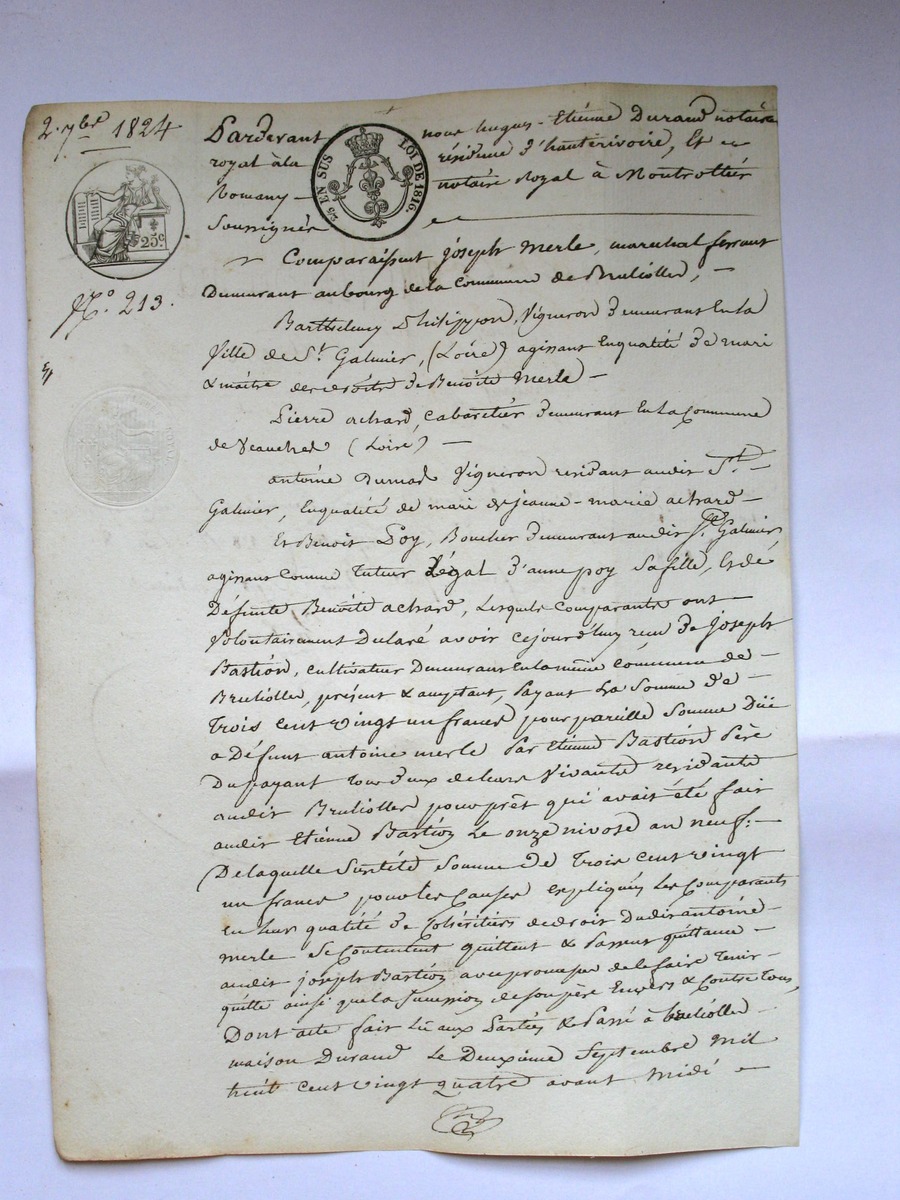 2. 7bre 1824
Pardevant nous hugues-Etienne Durand notaire
royal à la résidence d'hauterivoire, Et
Romany notaire Royal à Montrottier
Soussignés
EN SUS LOI DE 1816.
25c
No. 213.
Comparaissent joseph Merle, maréchal ferrant
Demeurant au bourg de la Commune de Brullioller,
Barthelemy Philippon, Vigneron demeurant En la
Ville de St. Galmier, (Loire) agissant En qualité de mari
& maître des droits de Benoite Merle
Pierre achard, cabaretier demeurant En la Commune
de Veauches (Loire)
antoine Durand Vigneron residant audit St.
Galmier, En qualité de mari de jeanne-marie achard
Et Benoit Poy, Boucher demeurant audit St. Galmier
agissant Comme tuteur Légal d'anne poy Sa fille, Et de
Défunte Benoite achard, Lesquels Comparants ont
Volontairement Declaré avoir cejourd'huy recu de joseph
Bastion, cultivateur Demeurant En la même Commune de
Brullioller, présent & acceptant, payant La Somme de
Trois Cent vingt un francs pour pareille Somme Düe
a Défunt antoine merle Par Etienne Bastion Père
Du payant tous deux de leurs Vivants residants
audit Brullioller pour prêt qui avait été fait
audit Etienne Bastion Le onze nivose an neuf:
De laquelle Susdite Somme de Trois Cent vingt
un francs pour les Causes Expliquées Les Comparants
En leur qualité de Cohéritiers de droit Dudit antoine
merle Se Contentent quittent & Passent quittance
audit joseph Bastion avec promesse de le faire tenir
quitte ainsi que la Succession de son père Envers & Contre tous,
Dont acte fait Lû aux Parties & Passé à brullioller
maison Durand Le Deuxième Septembre Mil
huit Cent vingt quatre avant Midi